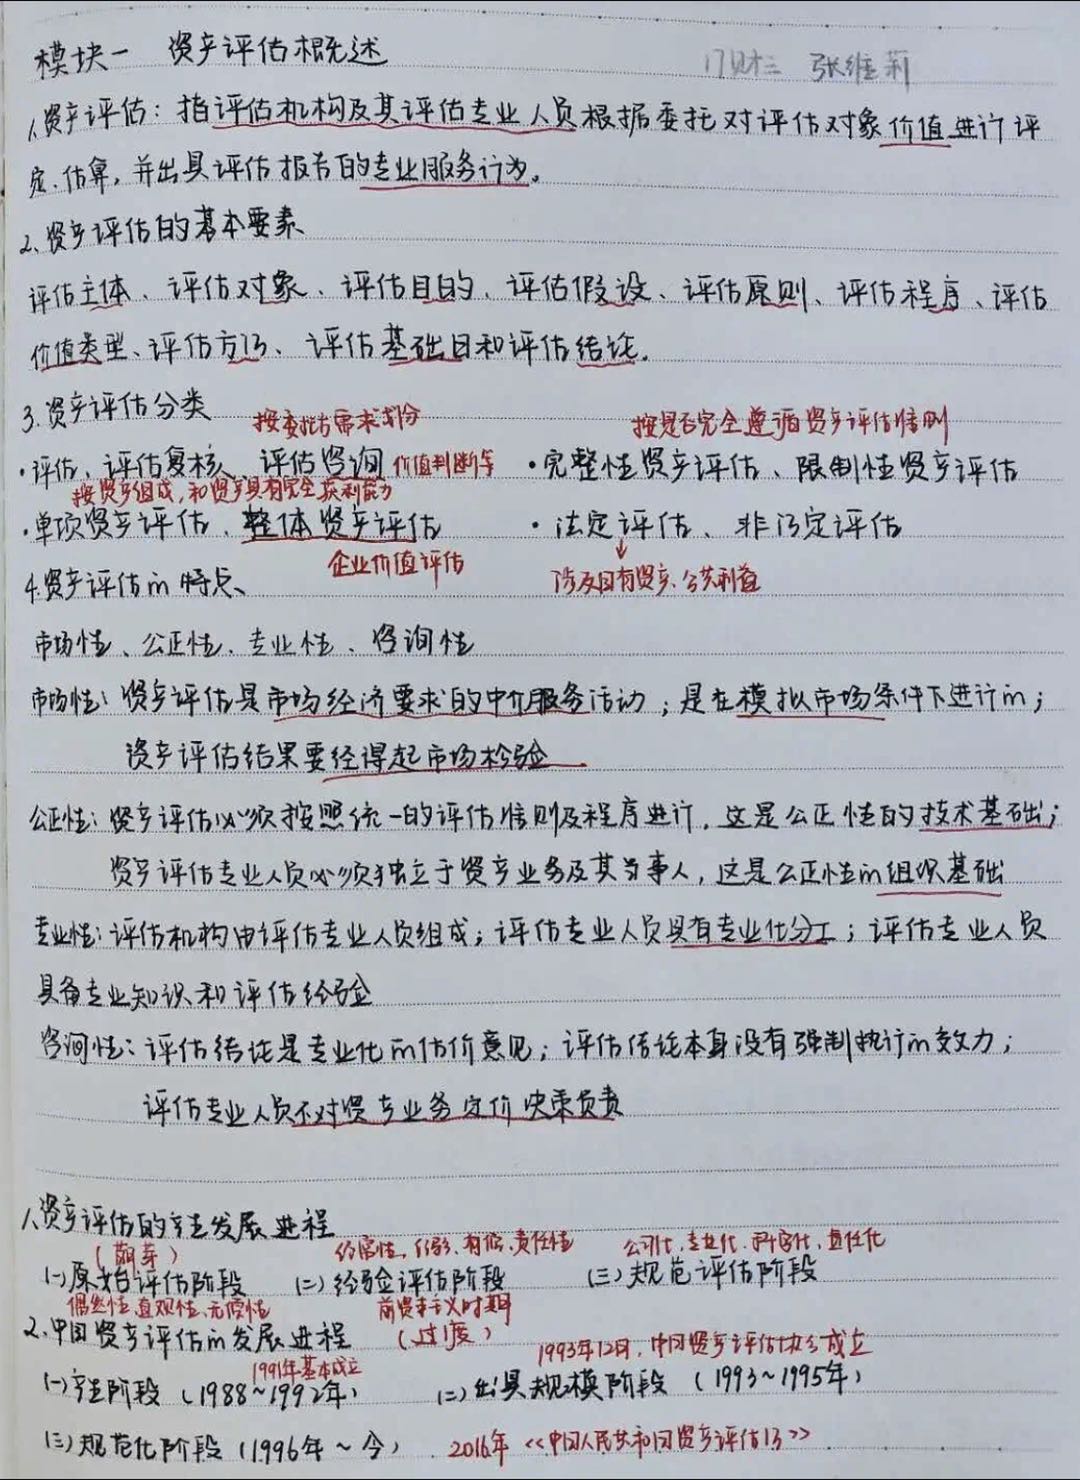 模块一 资产评估概述
17财三 张维莉
1.资产评估：指评估机构及其评估专业人员根据委托对评估对象价值进行评
定、估算，并出具评估报告的专业服务行为。
2、资产评估的基本要素
评估主体、评估对象、评估目的、评估假设、评估原则、评估程序、评估
价值类型、评估方法、评估基础日和评估结论。
3.资产评估分类
按委托方需求划分 按是否完全遵循资产评估准则
·评估、评估复核、评估咨询 价值判断等 ·完整性资产评估、限制性资产评估
按资产组成，和资产具有完全获利能力
·单项资产评估、整体资产评估 ·法定评估、非法定评估
企业价值评估 涉及国有资产、公共利益
4.资产评估的特点、
市场性、公正性、专业性、咨询性
市场性：资产评估是市场经济要求的中介服务活动；是在模拟市场条件下进行的；
资产评估结果要经得起市场检验
公正性：资产评估必须按照统一的评估准则及程序进行，这是公正性的技术基础；
资产评估专业人员必须独立于资产业务及其当事人，这是公正性的组织基础
专业性：评估机构由评估专业人员组成；评估专业人员具有专业化分工；评估专业人员
具备专业知识和评估经验
咨询性：评估结论是专业化的估价意见；评估结论本身没有强制执行的效力；
评估专业人员不对资产业务定价决策负责
1、资产评估的产生发展进程
(萌芽) 经常性、 有偿、责任性 公司化、专业化、科学化、责任化
(一)原始评估阶段 (二)经验评估阶段 (三)规范评估阶段
偶然性、直观性、无偿性 前资本主义时期
2、中国资产评估的发展进程 (过度)
1991年基本成立 1993年12月，中国资产评估协会成立
(一)产生阶段 (1988~1992年) (二)出具规模阶段 (1993~1995年)
(三)规范化阶段 (1996年~今) 2016年《中国人民共和国资产评估法》